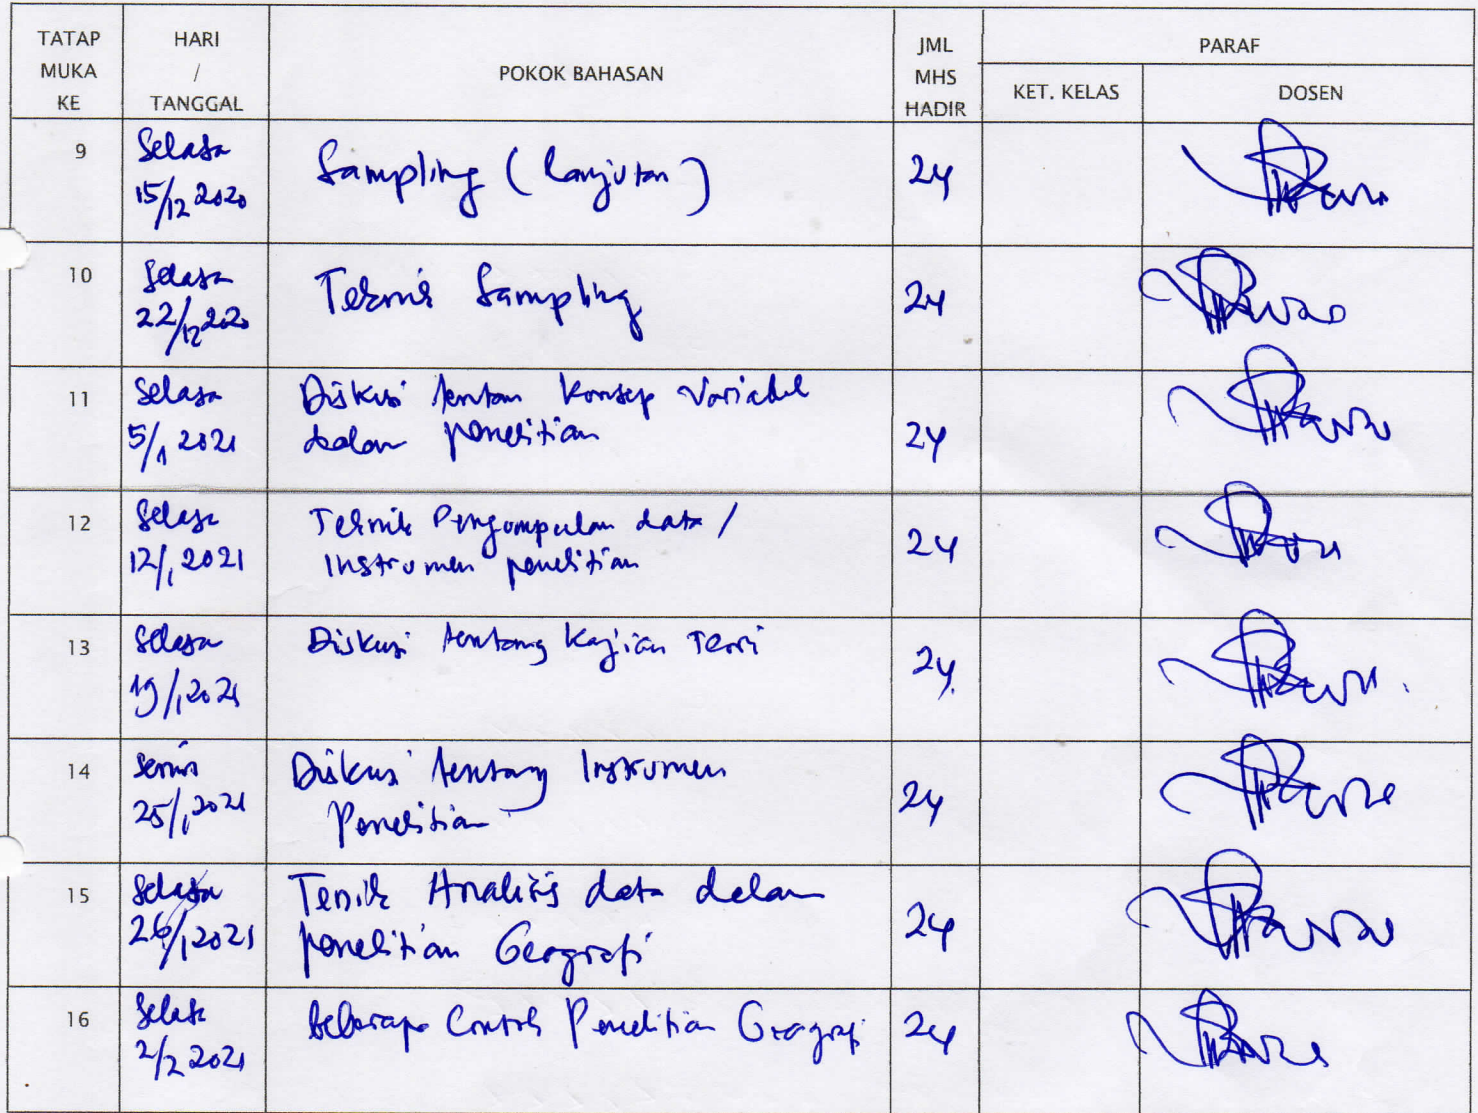 TATAP MUKA KE
HARI / TANGGAL
POKOK BAHASAN
JML MHS HADIR
PARAF
KET. KELAS
DOSEN
9
Selasa
15/12 2020
Sampling (lanjutan)
24
10
Selasa
22/12 2020
Teknik Sampling
24
11
Selasa
5/1 2021
Diskusi tentan Konsep Variabel
dalam penelitian
24
12
Selasa
12/1 2021
Teknik Pengumpulan data /
Instrumen penelitian
24
13
Selasa
19/1 2021
Diskusi tentang Kajian Teori
24
14
Senin
25/1 2021
Diskusi tentang Instrumen
Penelitian
24
15
Selasa
26/1 2021
Tenik Analisis data dalam
penelitian Geografi
24
16
Selasa
2/2 2021
Beberapa Contoh Penelitian Geografi
24